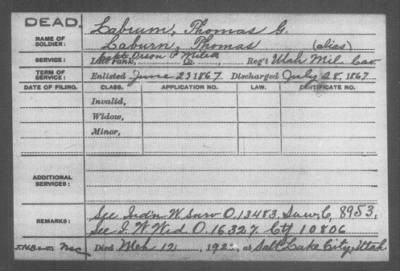 DEAD.
NAME OF SOLDIER: Labium, Thomas G.
Laburn, Thomas (alias)
SERVICE: Capt. Orson P. Late rank, Co. Reg't Utah Mil. Cav
TERM OF SERVICE: Enlisted June 23 1867, Discharged July 28, 1867
DATE OF FILING. CLASS. APPLICATION NO. LAW. CERTIFICATE NO.
Invalid,
Widow,
Minor,
ADDITIONAL SERVICES:
REMARKS: See Ind'n W. Surv O. 13483, Surv. C, 8953,
See I. W. Wid O. 16327 Ctf 10806
Died Mch 12, 192 , at Salt Lake City, Utah